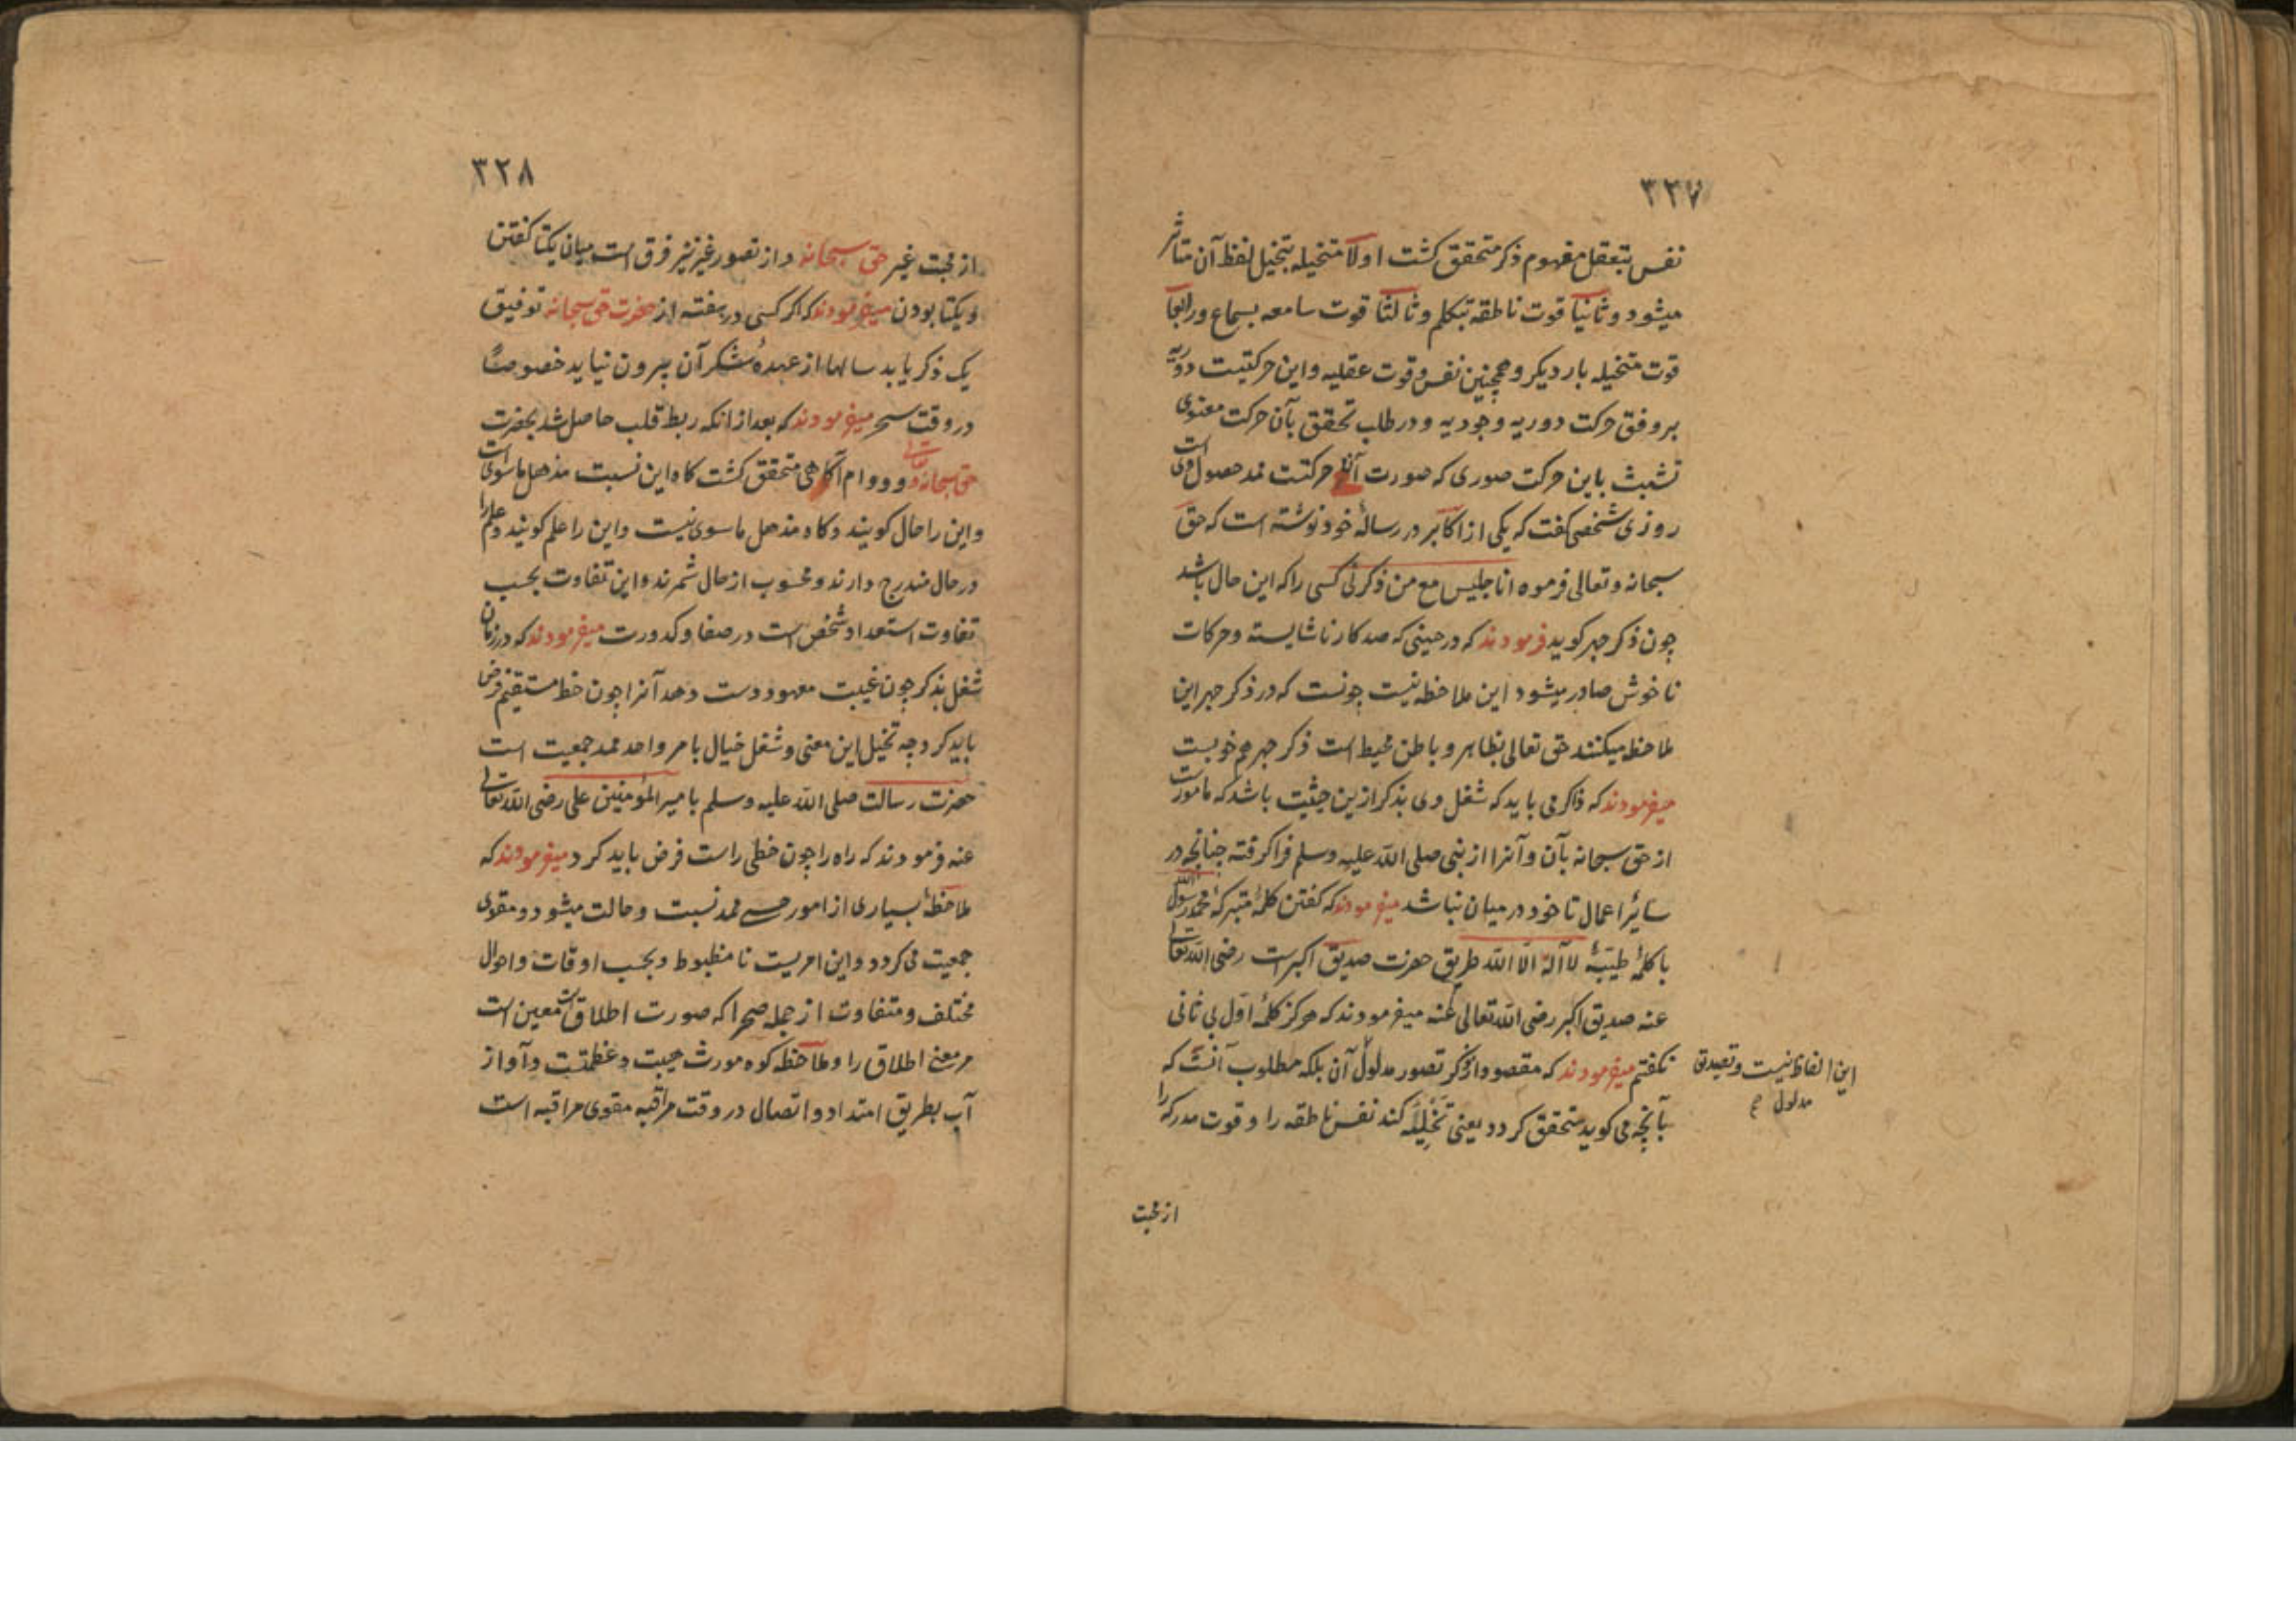 ۳۲۷
نفس بتعقل مفهوم ذکر متحقق کشت اولا متخیله بتخیل لفظ آن متاثر
میشود و ثانیا قوت ناطقه بتکلم و ثالثا قوت سامعه بسماع و رابعا
قوت متخیله بار دیکر و همچنین نفس و قوت عقلیه و این حرکتیست دوریه
بر وفق حرکت دوریه وجودیه و در طلب تحقق بآن حرکت معنوی
تشبث باین حرکت صوری که صورت آن حرکتست ممد حصول وی است
روزی شخصی کفت که یکی از اکابر در رسالهٔ خود نوشته است که حق
سبحانه و تعالی فرموه انا جلیس مع من ذکرنی کسی را که این حال باشد
چون ذکر جهر کوید فرمودند که در حینی که صد کار ناشایسته و حرکات
ناخوش صادر میشود این ملاحظه نیست چونست که در ذکر جهر این
ملاحظه میکنند حق تعالی بظاهر و باطن محیط است ذکر جهر هم خوبست
میفرمودند که ذاکر می باید که شغل وی بذکر ازین حیثیت باشد که مامورست
از حق سبحانه بآن و آنرا از نبی صلی الله علیه وسلم فرا کرفته چنانچه در
سائر اعمال تا خود در میان نباشد میفرمودند که کفتن کلمهٔ متبرکهٔ محمد رسول الله
با کلمهٔ طیبهٔ لا آله الا الله طریق حضرت صدیق اکبرست رضی الله تعالی
عنه صدیق اکبر رضی الله تعالی عنه میفرمودند که هرکز کلمهٔ اول بی ثانی
نکفتم میفرمودند که مقصود از ذکر تصور مدلول آن بلکه مطلوب آنست که
این الفاظ نیست و تصدیق
مدلول
بآنچه می کوید متحقق کردد یعنی تخلیه کند نفس ناطقه را و قوت مدرکه را
از محبت
۳۲۸
از محبت غیر حق سبحانه و از تصور غیر نیز فرق است میان یکتا کفتن
و یکتا بودن میفرمودند که اکر کسی در هفته از حضرت حق سبحانه توفیق
یک ذکر یابد سالها از عهدهٔ شکر آن بیرون نیاید خصوصاً
در وقت سحر میفرمودند که بعد از انکه ربط قلب حاصل شد بحضرت
حق سبحانه و تعالی و دوام آکاهی متحقق کشت کاه این نسبت مذهل ماسوی است
و این را حال کویند و کاه مذهل ماسوی نیست و این را علم کویند و علم را
در حال مندرج دارند و محسوب از حال شمرند و این تفاوت بحسب
تفاوت استعداد شخص است در صفا و کدورت میفرمودند که در زمان
شغل بذکر چون غیبت معهود دست دهد آنرا چون خط مستقیم فرض
باید کرد چه تخیل این معنی و شغل خیال بامر واحد ممد جمعیت است
حضرت رسالت صلی الله علیه وسلم با میر المؤمنین علی رضی الله تعالی
عنه فرمودند که راه را چون خطی راست فرض باید کرد میفرمودند که
ملاحظهٔ بسیاری از امور حسی ممد نسبت و حالت میشود و مقوی
جمعیت می کردد و این امریست نا مظبوط و بحسب اوقات و احوال
مختلف و متفاوت از جمله صحرا که صورت اطلاقست معین است
مر معنی اطلاق را و ملاحظه کوه مورث هیبت و عظمتست و آواز
آب بطریق امتداد و اتصال در وقت مراقبه مقوی مراقبه است